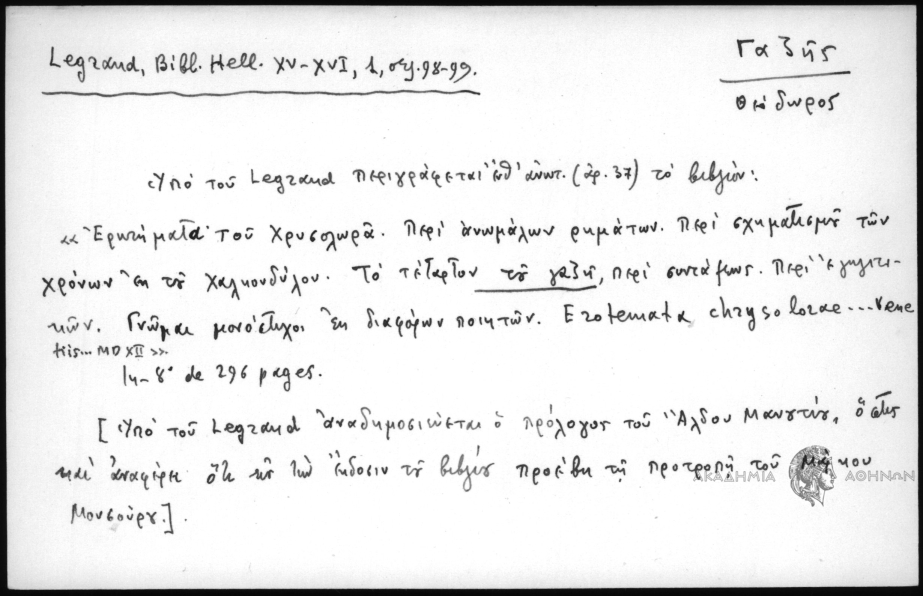 Legrand, Bibl. Hell. XV-XVI, 1, σελ. 98-99.
Γαζῆς
Θεόδωρος
Ὑπὸ τοῦ Legrand περιγράφεται ὑπ' ἀριθ. (ἀρ. 37) τὸ βιβλίον:
«Ἐρωτήματα τοῦ Χρυσολωρᾶ. Περὶ ἀνωμάλων ρημάτων. Περὶ σχηματισμοῦ τῶν
χρόνων ἐκ τοῦ Χαλκονδύλου. Τὸ τέταρτον τοῦ γαζῆ, περὶ συντάξεως. Περὶ ἐγκλιτι-
κῶν. Γνῶμαι μονόστιχοι ἐκ διαφόρων ποιητῶν. Erotemata chrysolorae... Vene
tiis... MDXII».
In-8° de 296 pages.
[Ὑπὸ τοῦ Legrand ἀναδημοσιεύεται ὁ πρόλογος τοῦ Ἄλδου Μανουτίου, ὅστις
καὶ ἀναφέρει ὅτι εἰς τὴν ἔκδοσιν τοῦ βιβλίου προέβη τῇ προτροπῇ τοῦ Μάρκου
Μουσούρου.].
ΑΚΑΔΗΜΙΑ ΑΘΗΝΩΝ